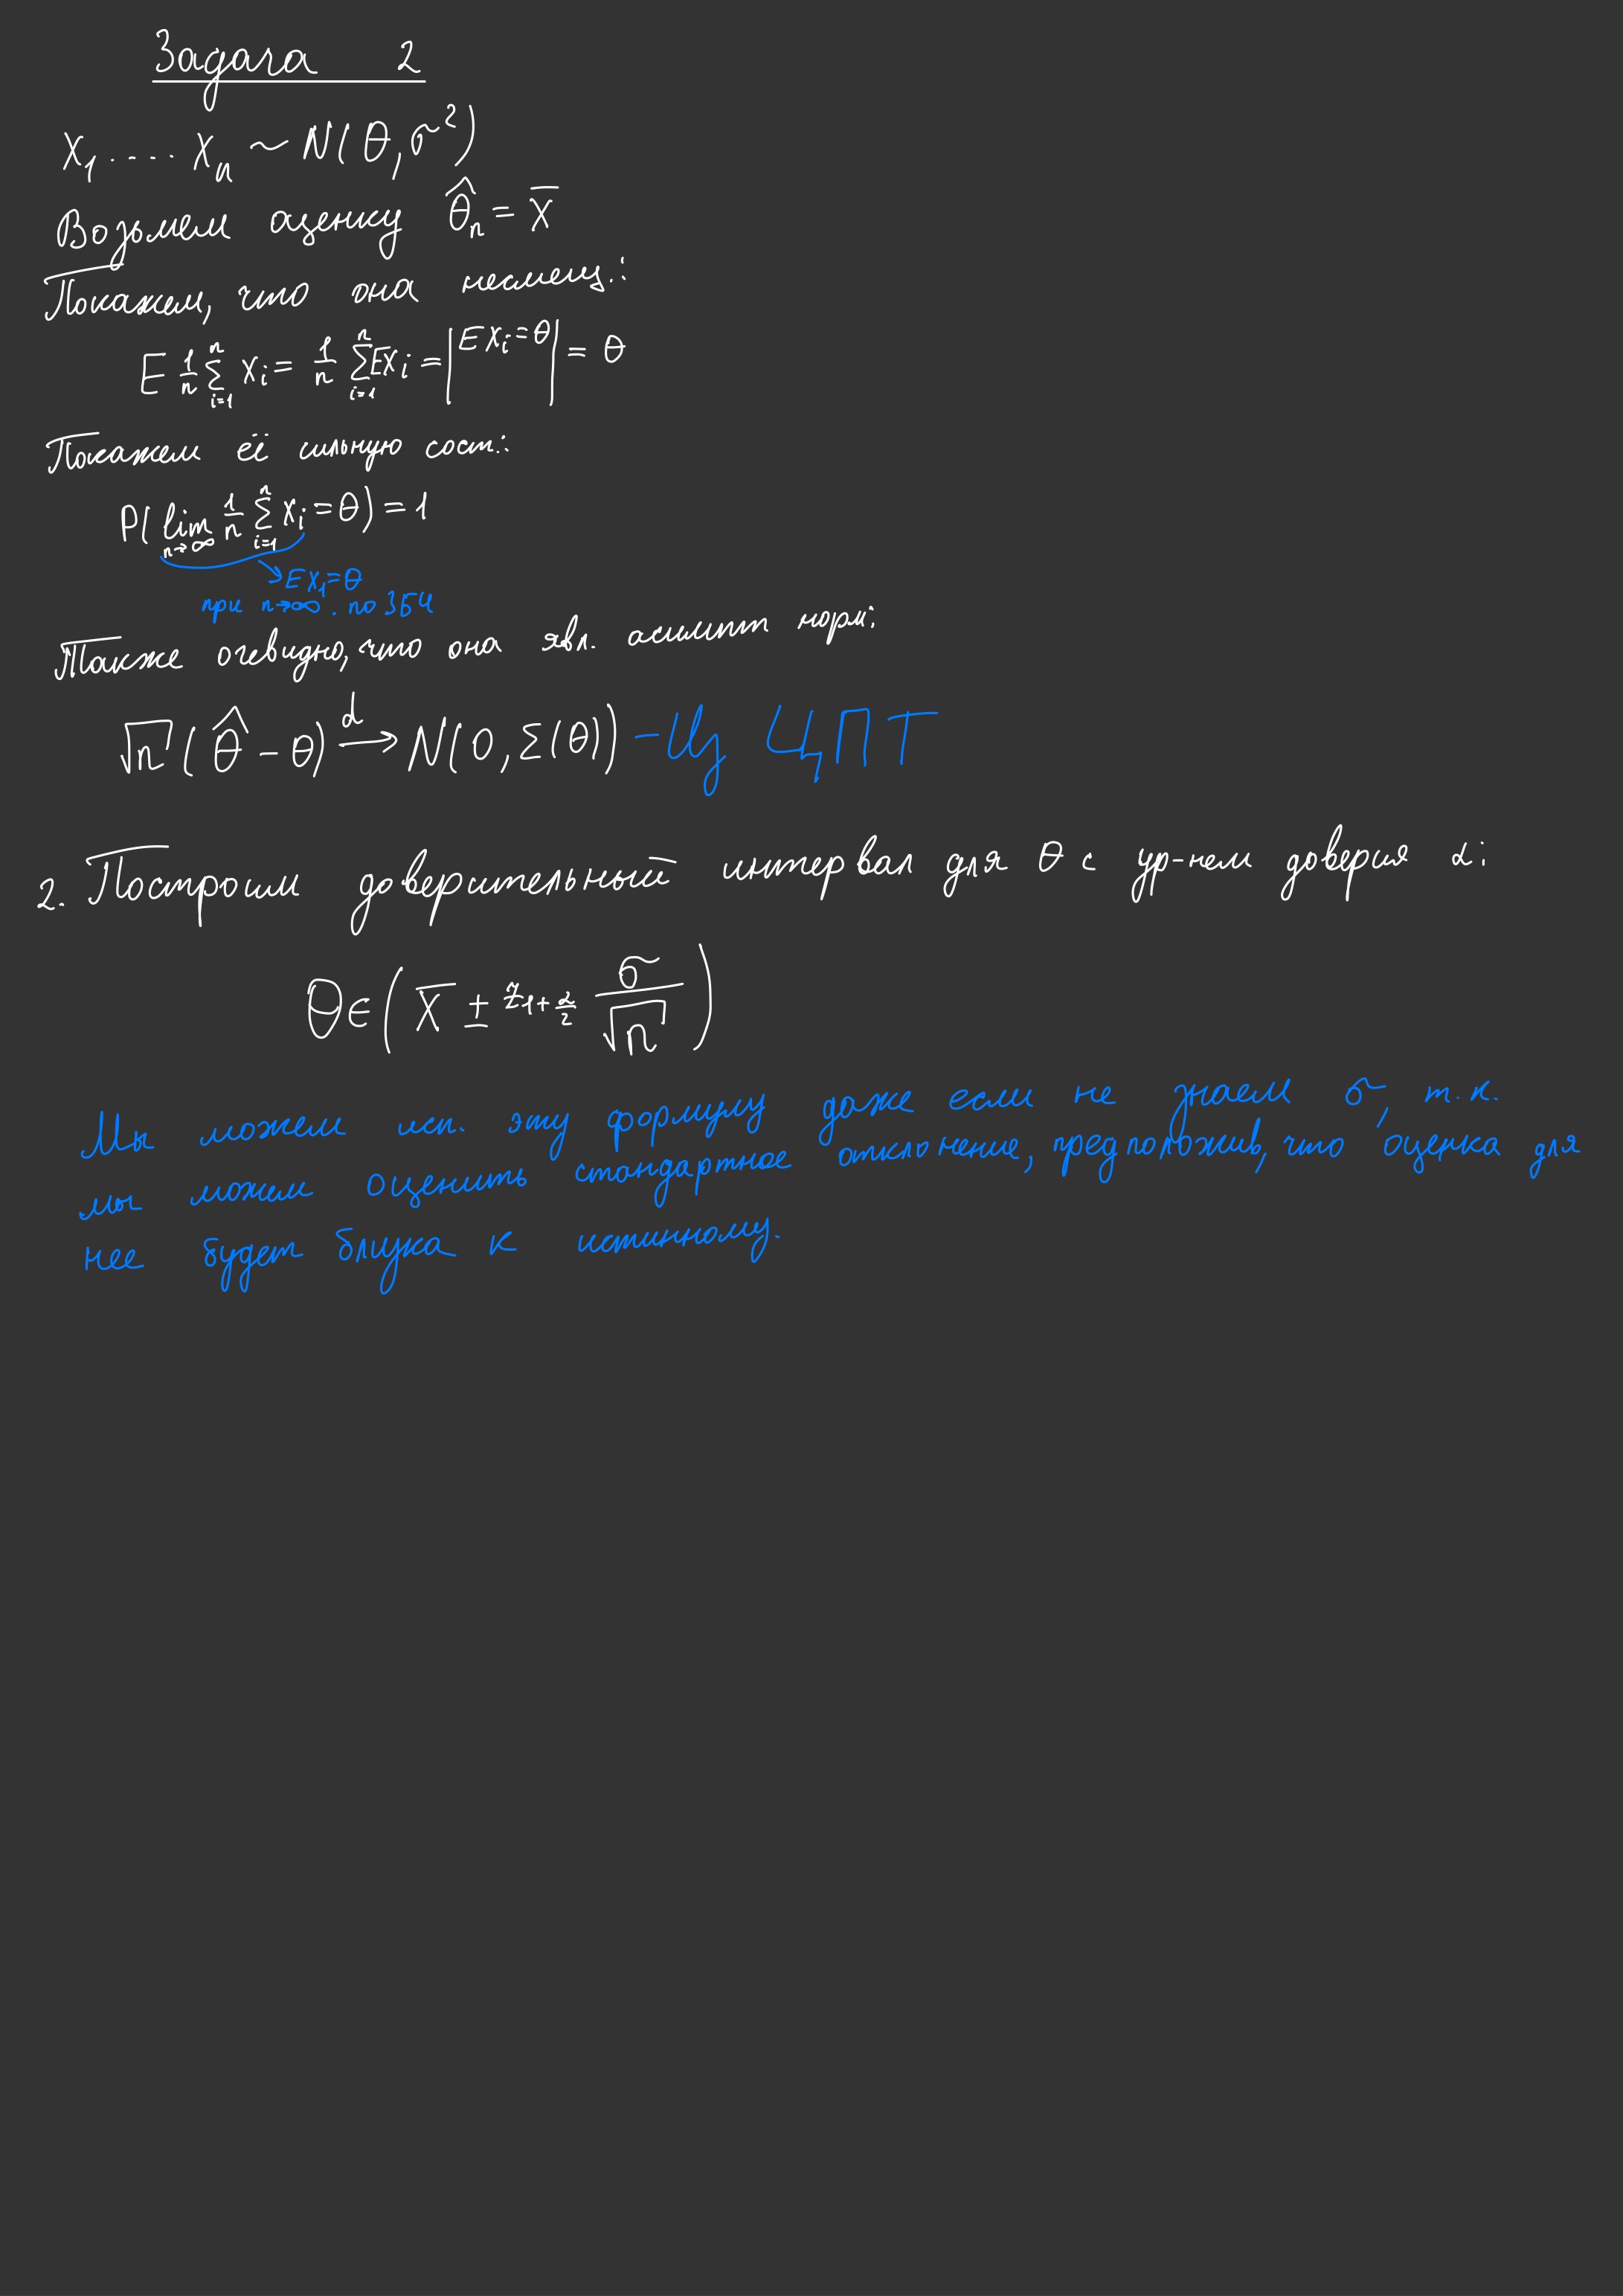 Задача 2
X₁, .... Xₙ ~ N(θ, σ²)
Возьмем оценку θ̂ₙ = X̄
Покажем, что она несмещ.:
E 1/n ∑ᵢ₌₁ⁿ Xᵢ = 1/n ∑ᵢ₌₁ⁿ EXᵢ = |EXᵢ = θ| = θ
Покажем её сильную сост.:
P( lim n→∞ 1/n ∑ᵢ₌₁ⁿ Xᵢ = θ) = 1
→ EX₁ = θ
при n→∞. по ЗБЧ
Также очевидно, что она явл. асимпт норм:
√n (θ̂ - θ) →ᵈ N(0, Σ(θ)) - Из ЦПТ
2. Построим доверительный интервал для θ с ур-нем доверия α:
θ ∈ ( X̄ ± z_{(1+α)/2} σ/√n )
Мы можем исп. эту формулу даже если не знаем σ, т.к.
мы можем оценить стандартное отклонение, предположив, что оценка для
нее будет близка к истинному.